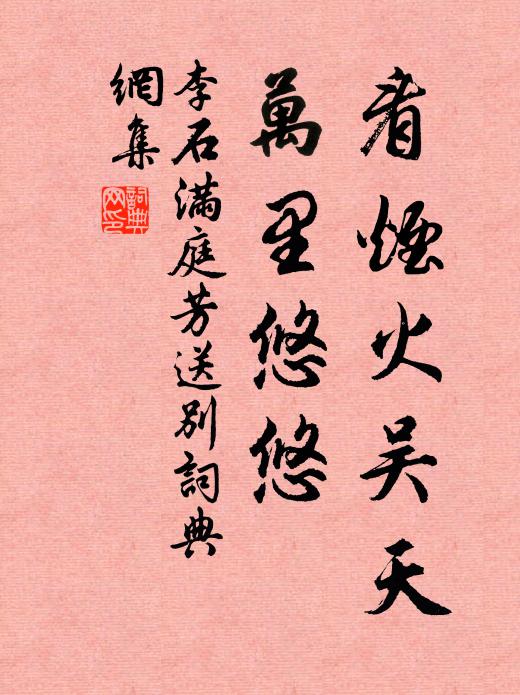 看煙火吴天
萬里悠悠
李石满庭芳送别詞典
網集
詞典
网印